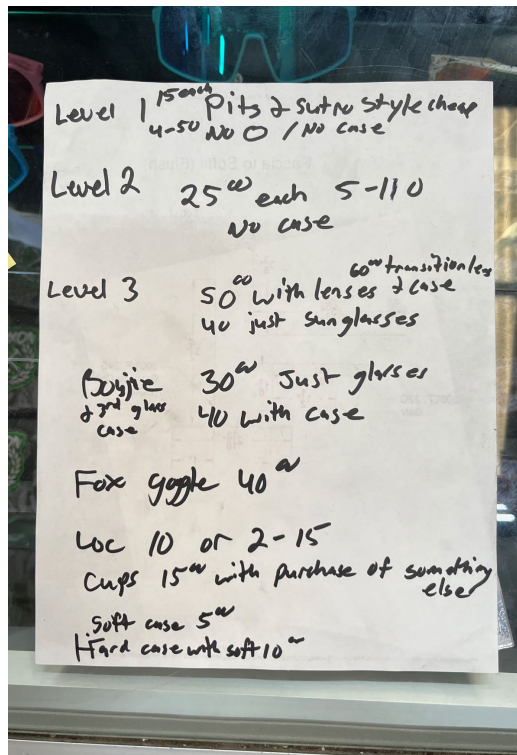 Level 1 15 each Pits & Sutro style cheap
4-50 No O / No case
Level 2 25⁰⁰ each 5-110
No case
60⁰⁰ transition lens
Level 3 50⁰⁰ with lenses & case
40 just sunglasses
Boujie 30⁰⁰ Just glasses
& 3rd glass 40 with case
case
Fox goggle 40⁰⁰
Loc 10 or 2-15
Cups 15⁰⁰ with purchase of something
else
Soft case 5⁰⁰
Hard case with soft 10⁰⁰